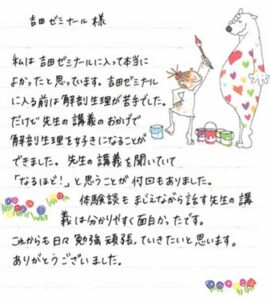 吉田ゼミナール 様
私は 吉田ゼミナールに入って本当に
よかったと思っています。吉田ゼミナール
に入る前は解剖生理が苦手でした。
だけど先生の講義のおかげで
解剖生理を好きになることが
できました。先生の講義を聞いていて
「なるほど!」と思うことが何回もありました。
体験談も まじえながら話す先生の講
義は分かりやすく面白かったです。
これからも日々 勉強 頑張っていきたいと思います。
ありがとうございました。